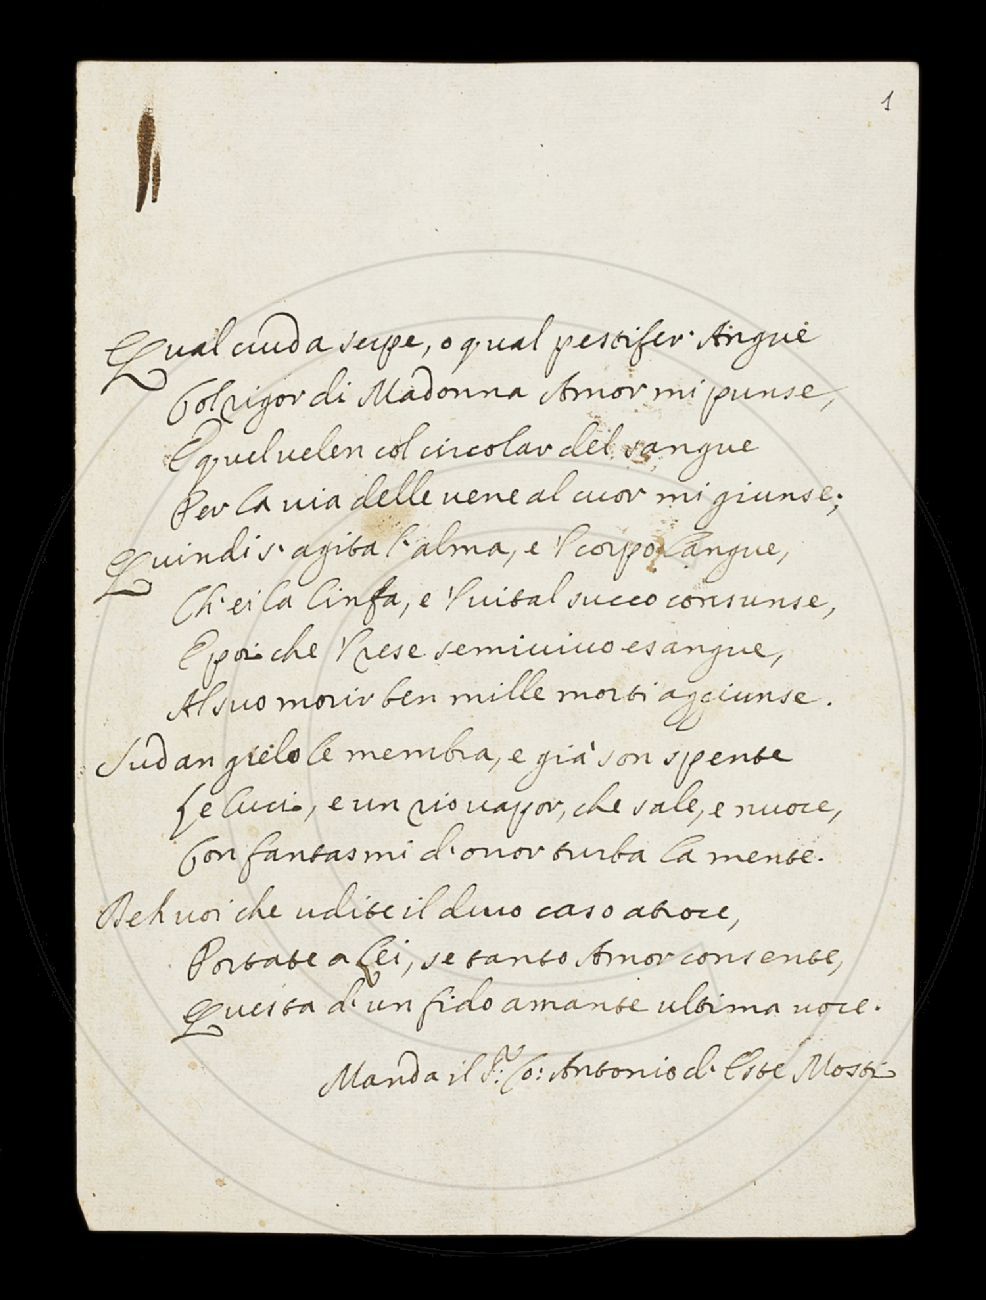 1
Qual cruda serpe, o qual pestifer' Angue
Col rigor di Madonna Amor mi punse,
E quel uelen col circolar del sangue
Per la uia delle uene al cuor mi giunse;
Quindi s' agita l' alma, e 'l corpo langue,
Ch' ei la linfa, e 'l uital succo consunse,
E poi che 'l rese semiuiuo esangue,
Al suo morir ben mille morti aggiunse.
Sudan gielo le membra, e già son spente
Le luci, e un rio uapor, che sale, e nuoce,
Con fantasmi d' orror turba la mente.
Deh uoi che udite il duro caso atroce,
Portate a Lei, se tanto Amor consente,
Questa d' un fido amante ultima uoce.
Manda il S.r Co: Antonio d' Este Mosti